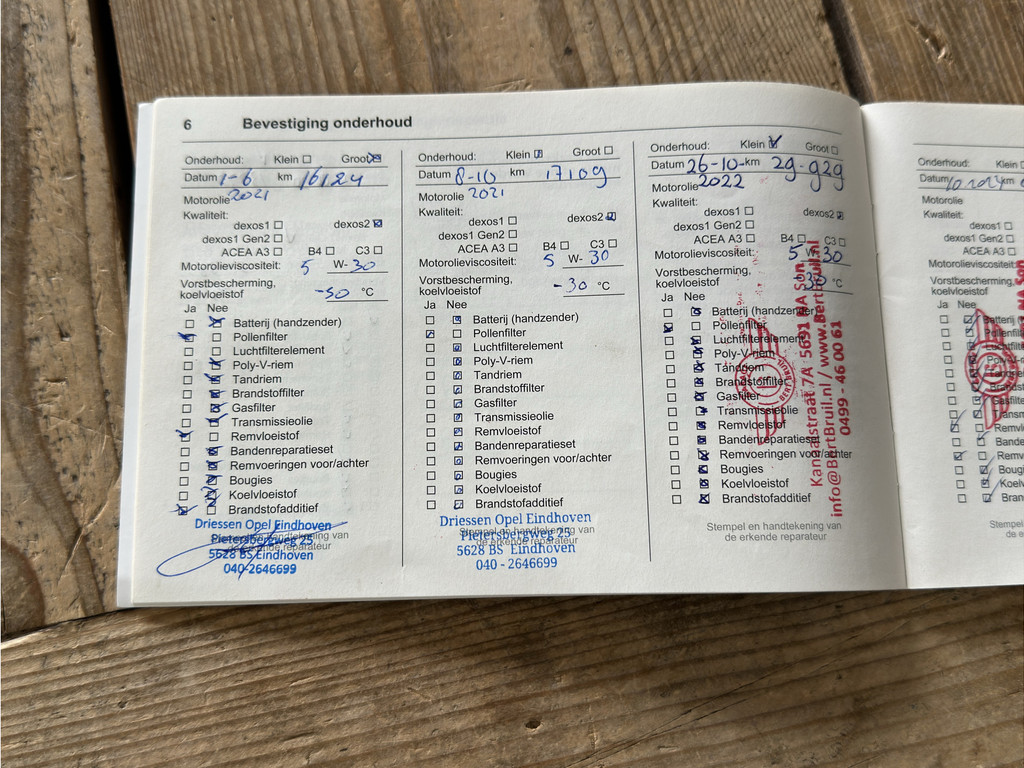 6 Bevestiging onderhoud
Onderhoud: Klein Groot
Datum 1-6 km 16124
2021
Motorolie
Kwaliteit:
dexos1 dexos2
dexos1 Gen2
ACEA A3 B4 C3
Motorolieviscositeit: 5 W- 30
Vorstbescherming,
koelvloeistof -30 °C
Ja Nee
Batterij (handzender)
Pollenfilter
Luchtfilterelement
Poly-V-riem
Tandriem
Brandstoffilter
Gasfilter
Transmissieolie
Remvloeistof
Bandenreparatieset
Remvoeringen voor/achter
Bougies
Koelvloeistof
Brandstofadditief
Stempel en handtekening van
de erkende reparateur
Driessen Opel Eindhoven
Pietersbergweg 25
5628 BS Eindhoven
040-2646699
Onderhoud: Klein Groot
Datum 8-10 km 17109
Motorolie 2021
Kwaliteit:
dexos1 dexos2
dexos1 Gen2
ACEA A3 B4 C3
Motorolieviscositeit: 5 W- 30
Vorstbescherming,
koelvloeistof -30 °C
Ja Nee
Batterij (handzender)
Pollenfilter
Luchtfilterelement
Poly-V-riem
Tandriem
Brandstoffilter
Gasfilter
Transmissieolie
Remvloeistof
Bandenreparatieset
Remvoeringen voor/achter
Bougies
Koelvloeistof
Brandstofadditief
Stempel en handtekening van
de erkende reparateur
Driessen Opel Eindhoven
Pietersbergweg 25
5628 BS Eindhoven
040 - 2646699
Onderhoud: Klein Groot
Datum 26-10- km 29.929
Motorolie 2022
Kwaliteit:
dexos1 dexos2
dexos1 Gen2
ACEA A3 B4 C3
Motorolieviscositeit: 5 W- 30
Vorstbescherming,
koelvloeistof 30 °C
Ja Nee
Batterij (handzender)
Pollenfilter
Luchtfilterelement
Poly-V-riem
Tandriem
Brandstoffilter
Gasfilter
Transmissieolie
Remvloeistof
Bandenreparatieset
Remvoeringen voor/achter
Bougies
Koelvloeistof
Brandstofadditief
Stempel en handtekening van
de erkende reparateur
Kanaalstraat 7A 5691 NA Son
info@BertBruil.nl / www.BertBruil.nl
0499 - 46 00 61
Onderhoud: Klein
Datum km
Motorolie
Kwaliteit:
dexos1
dexos1 Gen2
ACEA A3
Motorolieviscositeit:
Vorstbescherming,
koelvloeistof
Ja Nee